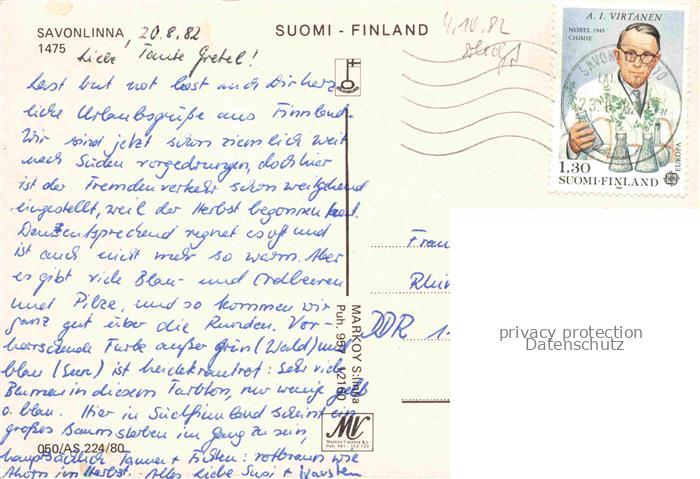 SAVONLINNA
1475
20.8.82
SUOMI - FINLAND
4.10.82
A. I. VIRTANEN
NOBEL 1945
CHIMIE
1.30
SUOMI-FINLAND
EUROPA
Liebe Tante Gretel!
Last but not least auch Dir herz-
liche Urlaubsgrüße aus Finnland.
Wir sind jetzt schon ziemlich weit
nach Süden vorgedrungen, doch hier
ist der Fremdenverkehr schon weitgehend
eingestellt, weil der Herbst begonnen hat.
Dementsprechend regnet es oft und
ist auch nicht mehr so warm. Aber
es gibt viele Blau- und Erdbeeren
und Pilze, und so kommen wir
ganz gut über die Runden. Vor-
herrschende Farbe außer grün (Wald) und
blau (Seen) ist heidekrautrot: sehr viele
Blumen in diesem Farbton, nur wenige gelb
o. blau. Hier in Südfinnland scheint ein
großes Baumsterben im Gang zu sein,
hauptsächlich Tannen + Fichten: rotbraun wie
Ahorn im Herbst. Alles Liebe Susi + Karsten
050/AS 224/80
MARKOY S:linna
Puh. 957
MV
Frau
Rhein
DDR 1
privacy protection
Datenschutz